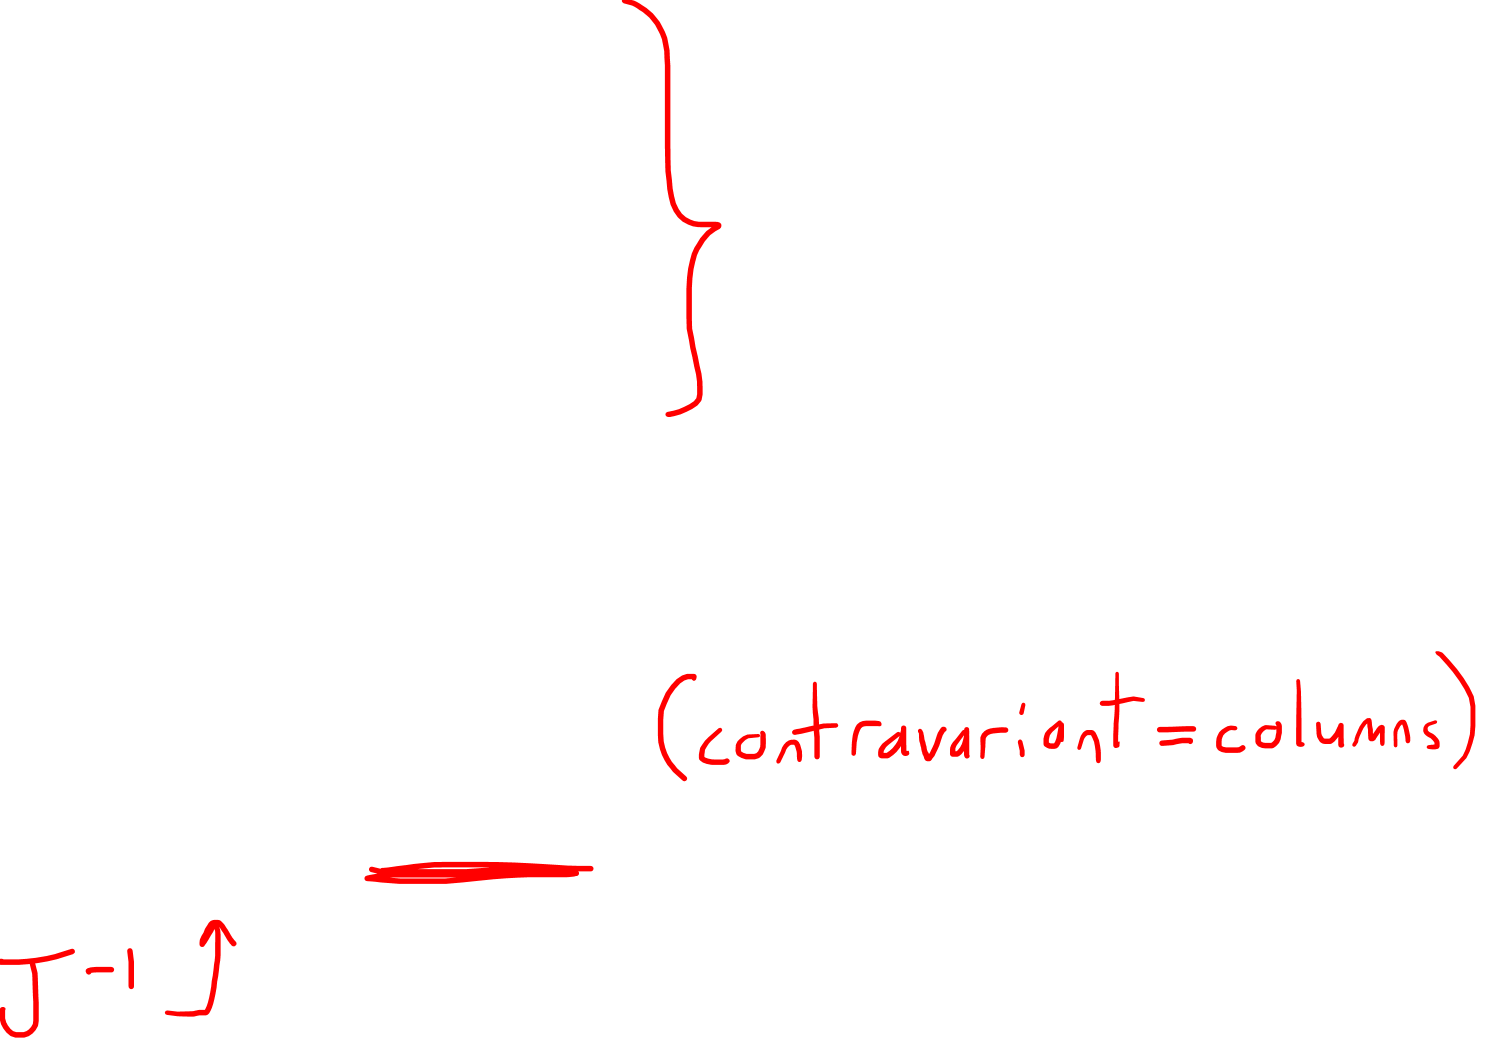 (contravariant = columns)
J⁻¹